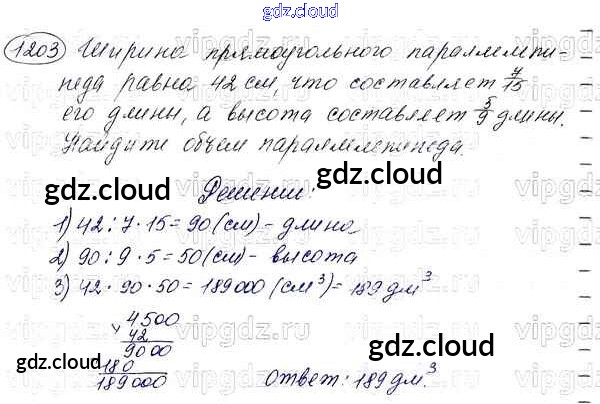 gdz.cloud
1203 Ширина прямоугольного параллелепи-
педа равна 42 см, что составляет 7/15
его длины, а высота составляет 5/9 длины.
Найдите объем параллелепипеда.
gdz.cloud gdz.cloud
Решение:
1) 42 : 7 · 15 = 90 (см) - длина
2) 90 : 9 · 5 = 50 (см) - высота
3) 42 · 90 · 50 = 189000 (см³) = 189 дм³
× 4500
42
9000
180
189000
Ответ: 189 дм³.
gdz.cloud gdz.cloud